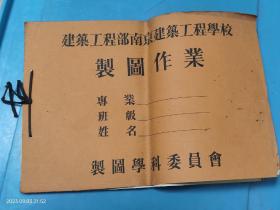 建築工程部南京建築工程學校
製圖作業
專業
班級
姓名
製圖學科委員會
2023/09/03 21:53